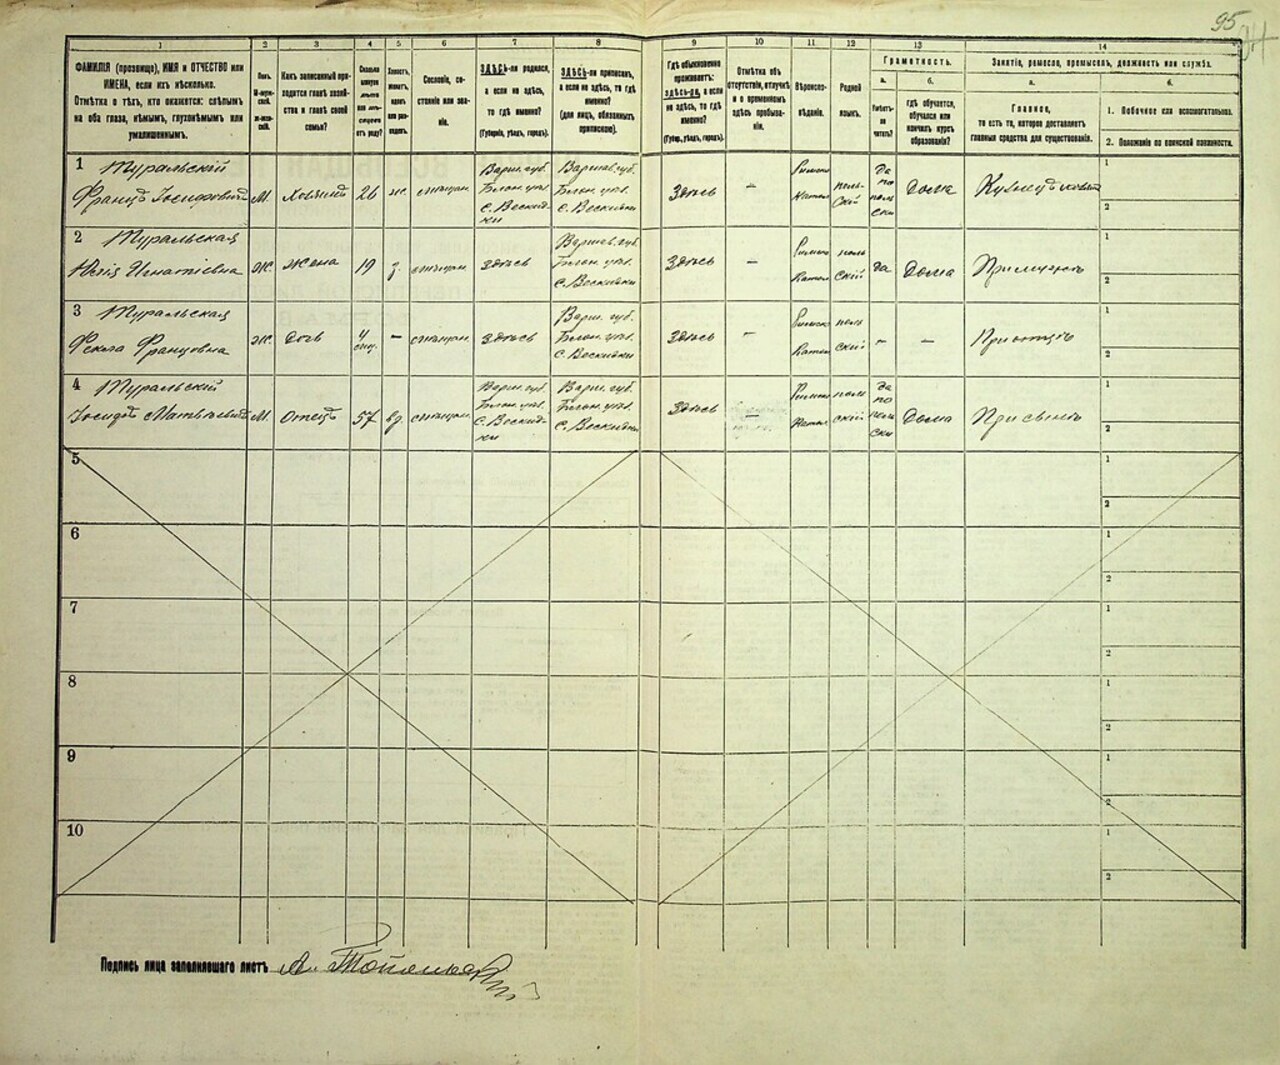 95
1 2 3 4 5 6 7 8 9 10 11 12 13 14
ФАМИЛІЯ (прозвище), ИМЯ и ОТЧЕСТВО или
ИМЕНА, если ихъ нѣсколько.
Отмѣтка о тѣхъ, кто окажется: слѣпымъ
на оба глаза, нѣмымъ, глухонѣмымъ или
умалишеннымъ.
Полъ.
М-мужской.
Ж-женскій.
Какъ записанный приходится
главѣ хозяйства и главѣ своей
семьи?
Сколько
минуло
лѣтъ
или мѣсяцевъ
отъ роду?
Холостъ,
женатъ,
вдовъ
или разведенъ.
Сословіе, состояніе
или званіе.
ЗДѢСЬ-ли родился,
а если не здѣсь,
то гдѣ именно?
(Губернія, уѣздъ, городъ).
ЗДѢСЬ-ли приписанъ,
а если не здѣсь, то гдѣ
именно?
(для лицъ, обязанныхъ
припискою).
Гдѣ обыкновенно
проживаетъ:
здѣсь-ли, а если
не здѣсь, то гдѣ
именно?
(Губ., уѣздъ, городъ).
Отмѣтка объ
отсутствіи, отлучкѣ
и о временномъ
здѣсь пребываніи.
Вѣроисповѣданіе.
Родной
языкъ.
Грамотность.
а.
Умѣетъ-ли
читать?
б.
гдѣ обучается,
обучался или
кончилъ курсъ
образованія?
Занятіе, ремесло, промыселъ, должность или служба.
а.
Главное,
то есть то, которое доставляетъ
главныя средства для существованія.
б.
1. Побочное или вспомогательное.
2. Положеніе по воинской повинности.
1 Муральскій
Францъ Іосифовичъ М. Хозяинъ 26 ж. мѣщан. Варш. губ. Блон. уѣз. Здѣсь — Римско катол. польскій да по польски Дома
2 Муральская
Игнатіевна Ж. Жена 19 з. мѣщан. Здѣсь Варшав. губ. Блон. уѣз. Здѣсь — Римско катол. польскій да Дома При мужѣ
3 Муральская
Францовна Ж. Дочь 4 мѣщан. Здѣсь Варш. губ. Блон. уѣз. Здѣсь — Римско катол. польскій — — При отцѣ
4 Муральскій
Іосифъ Матвѣевичъ М. Отецъ 57 вд. мѣщан. Варш. губ. Блон. уѣз. Здѣсь — Римско катол. польскій да по польски Дома При сынѣ
5
6
7
8
9
10
Подпись лица заполнявшаго листъ